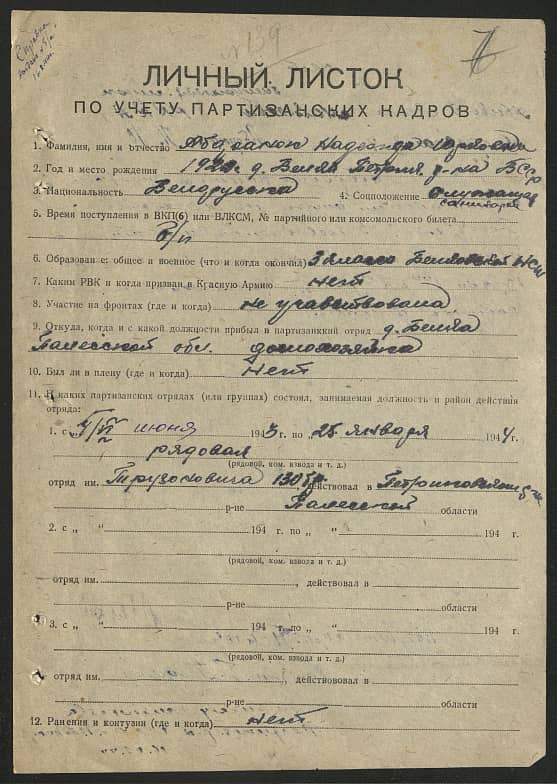 Справка
№ 139
ЛИЧНЫЙ ЛИСТОК
ПО УЧЕТУ ПАРТИЗАНСКИХ КАДРОВ
1. Фамилия, имя и отчество Надежда
2. Год и место рождения д. Белёв р-на БССР
3. Национальность Белорусска 4. Соцположение служащая
санитарка
5. Время поступления в ВКП(б) или ВЛКСМ, № партийного или комсомольского билета
б/п
6. Образование: общее и военное (что и когда окончил) 3 класса НСШ
7. Каким РВК и когда призван в Красную Армию нет
8. Участие на фронтах (где и когда) не учавствовала
9. Откуда, когда и с какой должности прибыл в партизанский отряд д. Белёв
Полесской обл. домохозяйка
10. Был ли в плену (где и когда) Нет
11. В каких партизанских отрядах (или группах) состоял, занимаемая должность и район действия
отряда:
1. с июня 1943 г. по „ 25 января 1944 г.
рядовая
(рядовой, ком. взвода и т. д.)
отряд им. 130 бр. действовал в Петриковском р-не
р-не Полесской области
2. с „ “ 194 г. по „ “ 194 г.
(рядовой, ком. взвода и т. д.)
отряд им. , действовал в
р-не области
3. с „ “ 194 г. по „ “ 194 г.
(рядовой, ком. взвода и т. д.)
отряд им. , действовал в
р-не области
12. Ранения и контузии (где и когда) нет